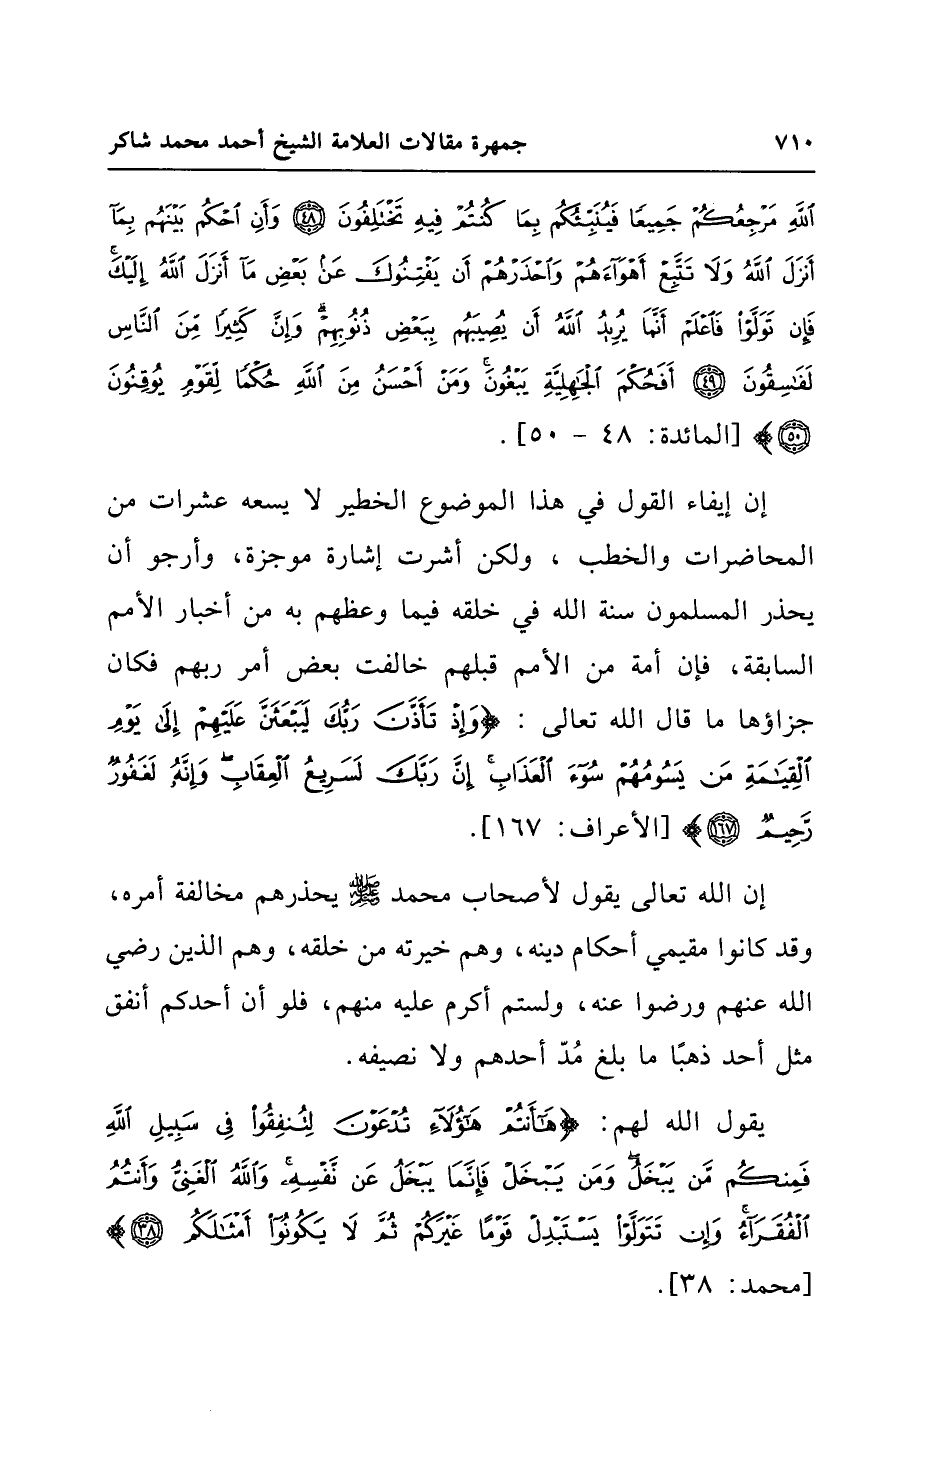 ٧١٠ جمهرة مقالات العلامة الشيخ أحمد محمد شاكر
ٱللَّهِ مَرْجِعُكُمْ جَمِيعًا فَيُنَبِّئُكُم بِمَا كُنتُمْ فِيهِ تَخْتَلِفُونَ ﴿٤٨﴾ وَأَنِ ٱحْكُم بَيْنَهُم بِمَآ
أَنزَلَ ٱللَّهُ وَلَا تَتَّبِعْ أَهْوَآءَهُمْ وَٱحْذَرْهُمْ أَن يَفْتِنُوكَ عَنۢ بَعْضِ مَآ أَنزَلَ ٱللَّهُ إِلَيْكَ ۖ
فَإِن تَوَلَّوْا۟ فَٱعْلَمْ أَنَّمَا يُرِيدُ ٱللَّهُ أَن يُصِيبَهُم بِبَعْضِ ذُنُوبِهِمْ ۗ وَإِنَّ كَثِيرًا مِّنَ ٱلنَّاسِ
لَفَـٰسِقُونَ ﴿٤٩﴾ أَفَحُكْمَ ٱلْجَـٰهِلِيَّةِ يَبْغُونَ ۚ وَمَنْ أَحْسَنُ مِنَ ٱللَّهِ حُكْمًا لِّقَوْمٍ يُوقِنُونَ
﴿٥٠﴾﴾ [المائدة: ٤٨ – ٥٠] .
إن إيفاء القول في هذا الموضوع الخطير لا يسعه عشرات من
المحاضرات والخطب ، ولكن أشرت إشارة موجزة، وأرجو أن
يحذر المسلمون سنة الله في خلقه فيما وعظهم به من أخبار الأمم
السابقة، فإن أمة من الأمم قبلهم خالفت بعض أمر ربهم فكان
جزاؤها ما قال الله تعالى : ﴿وَإِذْ تَأَذَّنَ رَبُّكَ لَيَبْعَثَنَّ عَلَيْهِمْ إِلَىٰ يَوْمِ
ٱلْقِيَـٰمَةِ مَن يَسُومُهُمْ سُوٓءَ ٱلْعَذَابِ ۗ إِنَّ رَبَّكَ لَسَرِيعُ ٱلْعِقَابِ ۖ وَإِنَّهُۥ لَغَفُورٌ
رَّحِيمٌ ﴿١٦٧﴾﴾ [الأعراف: ١٦٧].
إن الله تعالى يقول لأصحاب محمد ﷺ يحذرهم مخالفة أمره،
وقد كانوا مقيمي أحكام دينه، وهم خيرته من خلقه، وهم الذين رضي
الله عنهم ورضوا عنه، ولستم أكرم عليه منهم، فلو أن أحدكم أنفق
مثل أحد ذهبًا ما بلغ مُدّ أحدهم ولا نصيفه.
يقول الله لهم: ﴿هَـٰٓأَنتُمْ هَـٰٓؤُلَآءِ تُدْعَوْنَ لِتُنفِقُوا۟ فِى سَبِيلِ ٱللَّهِ
فَمِنكُم مَّن يَبْخَلُ ۖ وَمَن يَبْخَلْ فَإِنَّمَا يَبْخَلُ عَن نَّفْسِهِۦ ۚ وَٱللَّهُ ٱلْغَنِىُّ وَأَنتُمُ
ٱلْفُقَرَآءُ ۚ وَإِن تَتَوَلَّوْا۟ يَسْتَبْدِلْ قَوْمًا غَيْرَكُمْ ثُمَّ لَا يَكُونُوٓا۟ أَمْثَـٰلَكُم ﴿٣٨﴾﴾
[محمد: ٣٨].